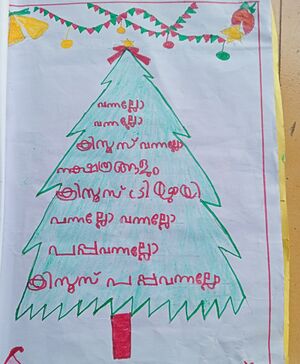 വന്നല്ലോ
വന്നല്ലോ
ക്രിസ്മസ് വന്നല്ലോ
നക്ഷത്രങ്ങളും
ക്രിസ്മസ് ട്രീയുമായി
വന്നല്ലോ വന്നല്ലോ
പപ്പവന്നല്ലോ
ക്രിസ്മസ് പപ്പവന്നല്ലോ